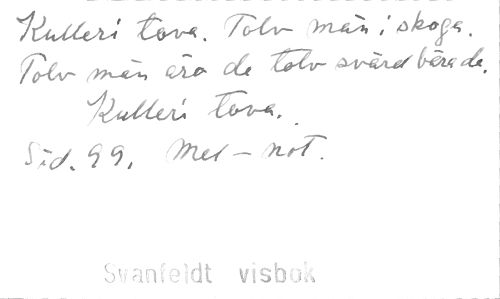 Kulleri tova. Tolv män i skoga.
Tolv män äro de tolv svärd bära de.
Kulleri tova.
Sid. 99. Mel-not.
Svanfeldt visbok